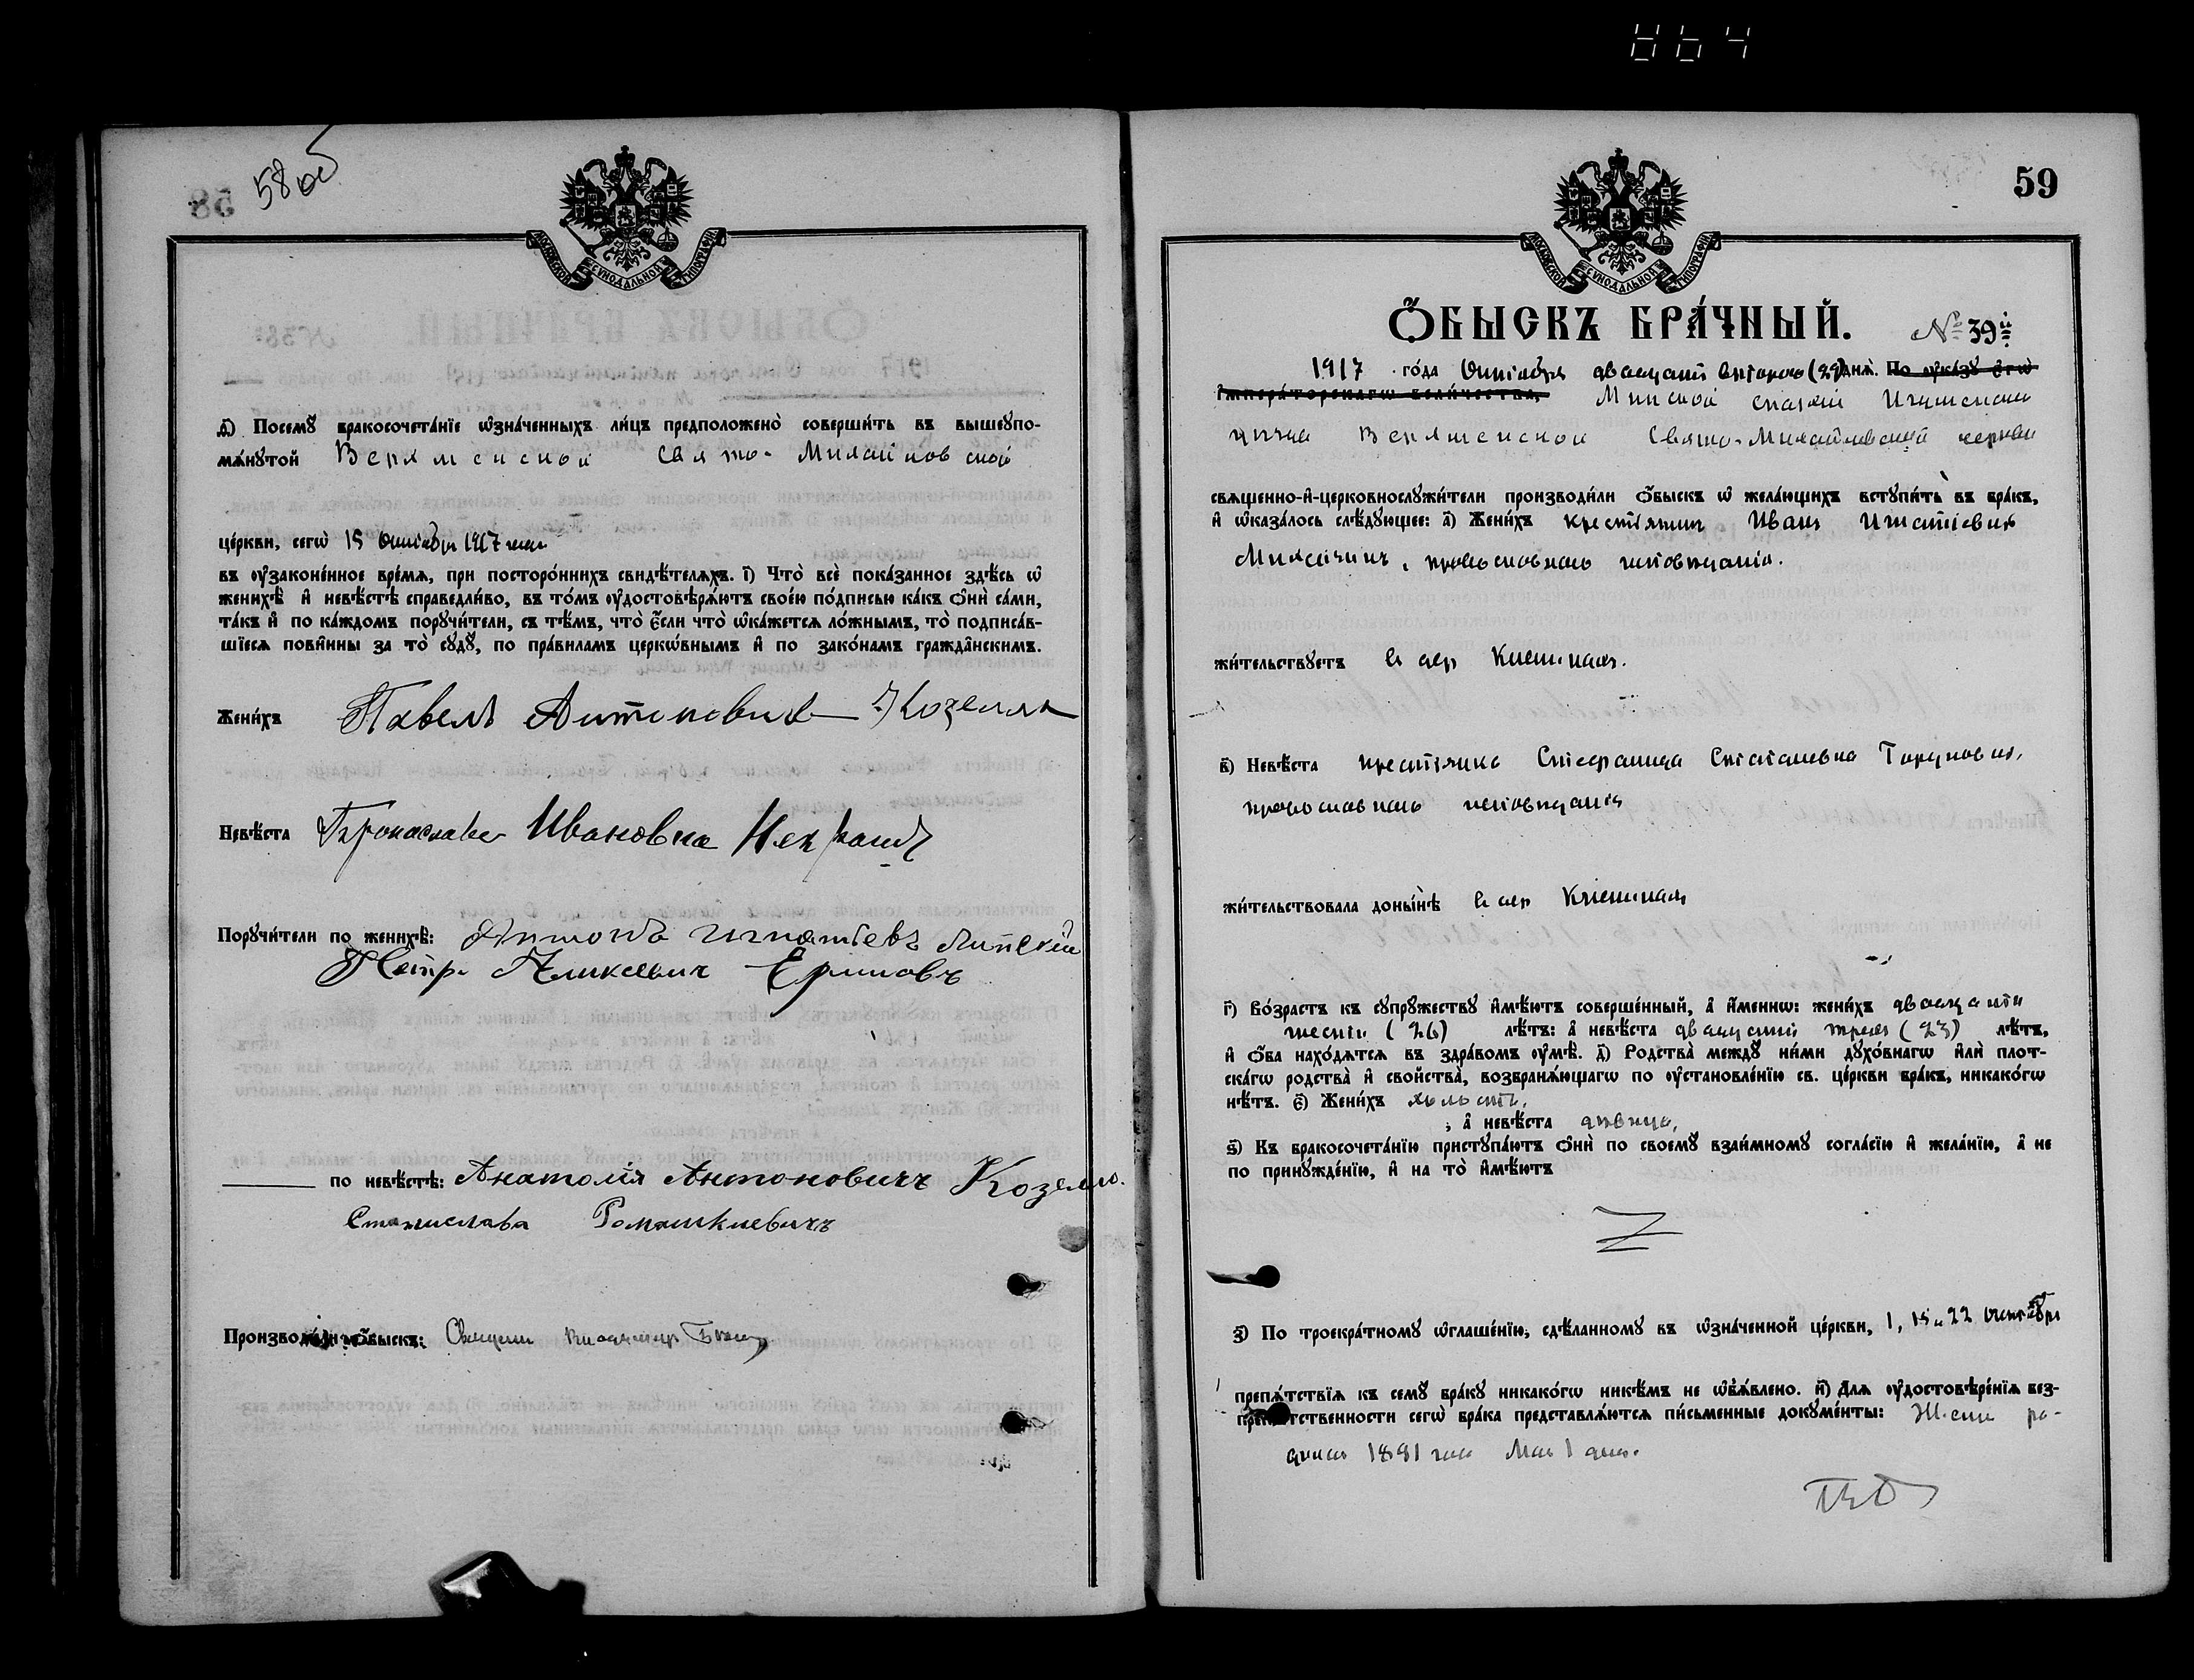 864
58 58об
МОСКОВСКОЙ СѴНОДАЛЬНОЙ ТИПОГРАФІИ
д҃і) Посемꙋ̀ бракосочета́нїе ѡ҆зна́ченныхъ ли́цъ предположено̀ соверши́ть въ вышеꙋпо-
мѧ́нꙋтой Верхменской Свято-Михайловской
це́ркви, сегѡ̀ 15 Октября 1917 года
въ ᲂу҆законе́нное вре́мѧ, при посторо́ннихъ свидѣ́телѧхъ. і҃) Что̀ всѐ пока́занное здѣ́сь ѡ҆
женихѣ̀ и҆ невѣ́стѣ справедли́во, въ то́мъ ᲂу҆достовѣрѧ́ютъ свое́ю по́дписью ка́къ ѻ҆нѝ са́ми,
та́къ и҆ по ка́ждомъ порꙋчи́тели, съ тѣ́мъ, что̀ є҆́сли что̀ ѡ҆ка́жетсѧ ло́жнымъ, то̀ подписа́в-
шїесѧ пови́нны за то̀ сꙋдꙋ̀, по пра́виламъ церко́внымъ и҆ по зако́намъ гражда́нскимъ.
Жени́хъ Павелъ Антоновичъ Козелло
Невѣ́ста Броњислава Ивановна Некрашъ
Порꙋчи́тели по женихѣ̀: Антонъ Игнатьевъ Липскій
Петръ Ермиловъ
по невѣ́стѣ: Анатолія Антоновичъ Козелло.
Станислава Ромашкиевичъ
Производи́ли ѻ҆́быскъ: Священ Владимир
59
МОСКОВСКОЙ СѴНОДАЛЬНОЙ ТИПОГРАФІИ
Ѻ҆́БЫСКЪ БРА́ЧНЫЙ. № 39й
1917 го́да Октября двадцать второго (22) днѧ̀. По ᲂу҆ка́зꙋ є҆гѡ̀
і҆мпера́торскагѡ вели́чества, Минской епархіи Игуменскаго
уѣзда Верхменской Свято-Михайловской церкви
свѧще́нно-и҆-церковнослꙋжи́тели производи́ли ѻ҆́быскъ ѡ҆ жела́ющихъ встꙋпи́ть въ бра́къ,
и҆ ѡ҆каза́лось слѣ́дꙋющее: а҃) Жени́хъ крестьянинъ Иванъ Игнатіевичъ
православнаго исповѣданія.
жи́тельствꙋетъ въ дер
в҃) Невѣ́ста крестьянка Стефанида Степановна
православнаго исповѣданія
жи́тельствовала доны́нѣ въ дер
г҃) Во́зрастъ къ сꙋпрꙋ́жествꙋ и҆мѣ́ютъ соверше́нный, а҆ и҆́менно: жени́хъ двадцати
шести (26) лѣ́тъ: а҆ невѣ́ста двадцати трехъ (23) лѣ́тъ,
и҆ ѻ҆́ба нахо́дѧтсѧ въ здра́вомъ ᲂу҆мѣ̀. д҃) Родства̀ междꙋ̀ ни́ми дꙋхо́внагѡ и҆лѝ плот-
ска́гѡ родства̀ и҆ свойства̀, возбранѧ́ющагѡ по ᲂу҆становле́нїю св. це́ркви бра́къ, никако́гѡ
нѣ́тъ. є҃) Жени́хъ холостъ,
; а҆ невѣ́ста дѣвица,
ѕ҃) Къ бракосочета́нїю пристꙋпа́ютъ ѻ҆нѝ по своемꙋ̀ взаи́мномꙋ согла́сїю и҆ жела́нїю, а҆ не
по принꙋжде́нїю, и҆ на то̀ и҆мѣ́ютъ
з҃) По троекра́тномꙋ ѡ҆глаше́нїю, сдѣ́ланномꙋ въ ѡ҆зна́ченной це́ркви, 1, 15 и 22 Октября
препѧ́тствїѧ къ семꙋ̀ бра́кꙋ никако́гѡ никѣ́мъ не ѡ҆б̾ѧ́влено. и҃) Длѧ ᲂу҆достовѣре́нїѧ без-
препѧ́тственности сегѡ̀ бра́ка представлѧ́ютсѧ пи́сьменные докꙋме́нты: Жених ро-
дился 1891 года Мая 1 дня.